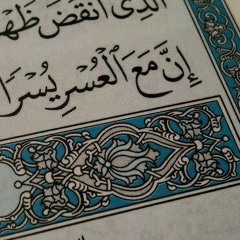 الَّذِى أَنْقَضَ
إِنَّ مَعَ الْعُسْرِ يُسْرًا